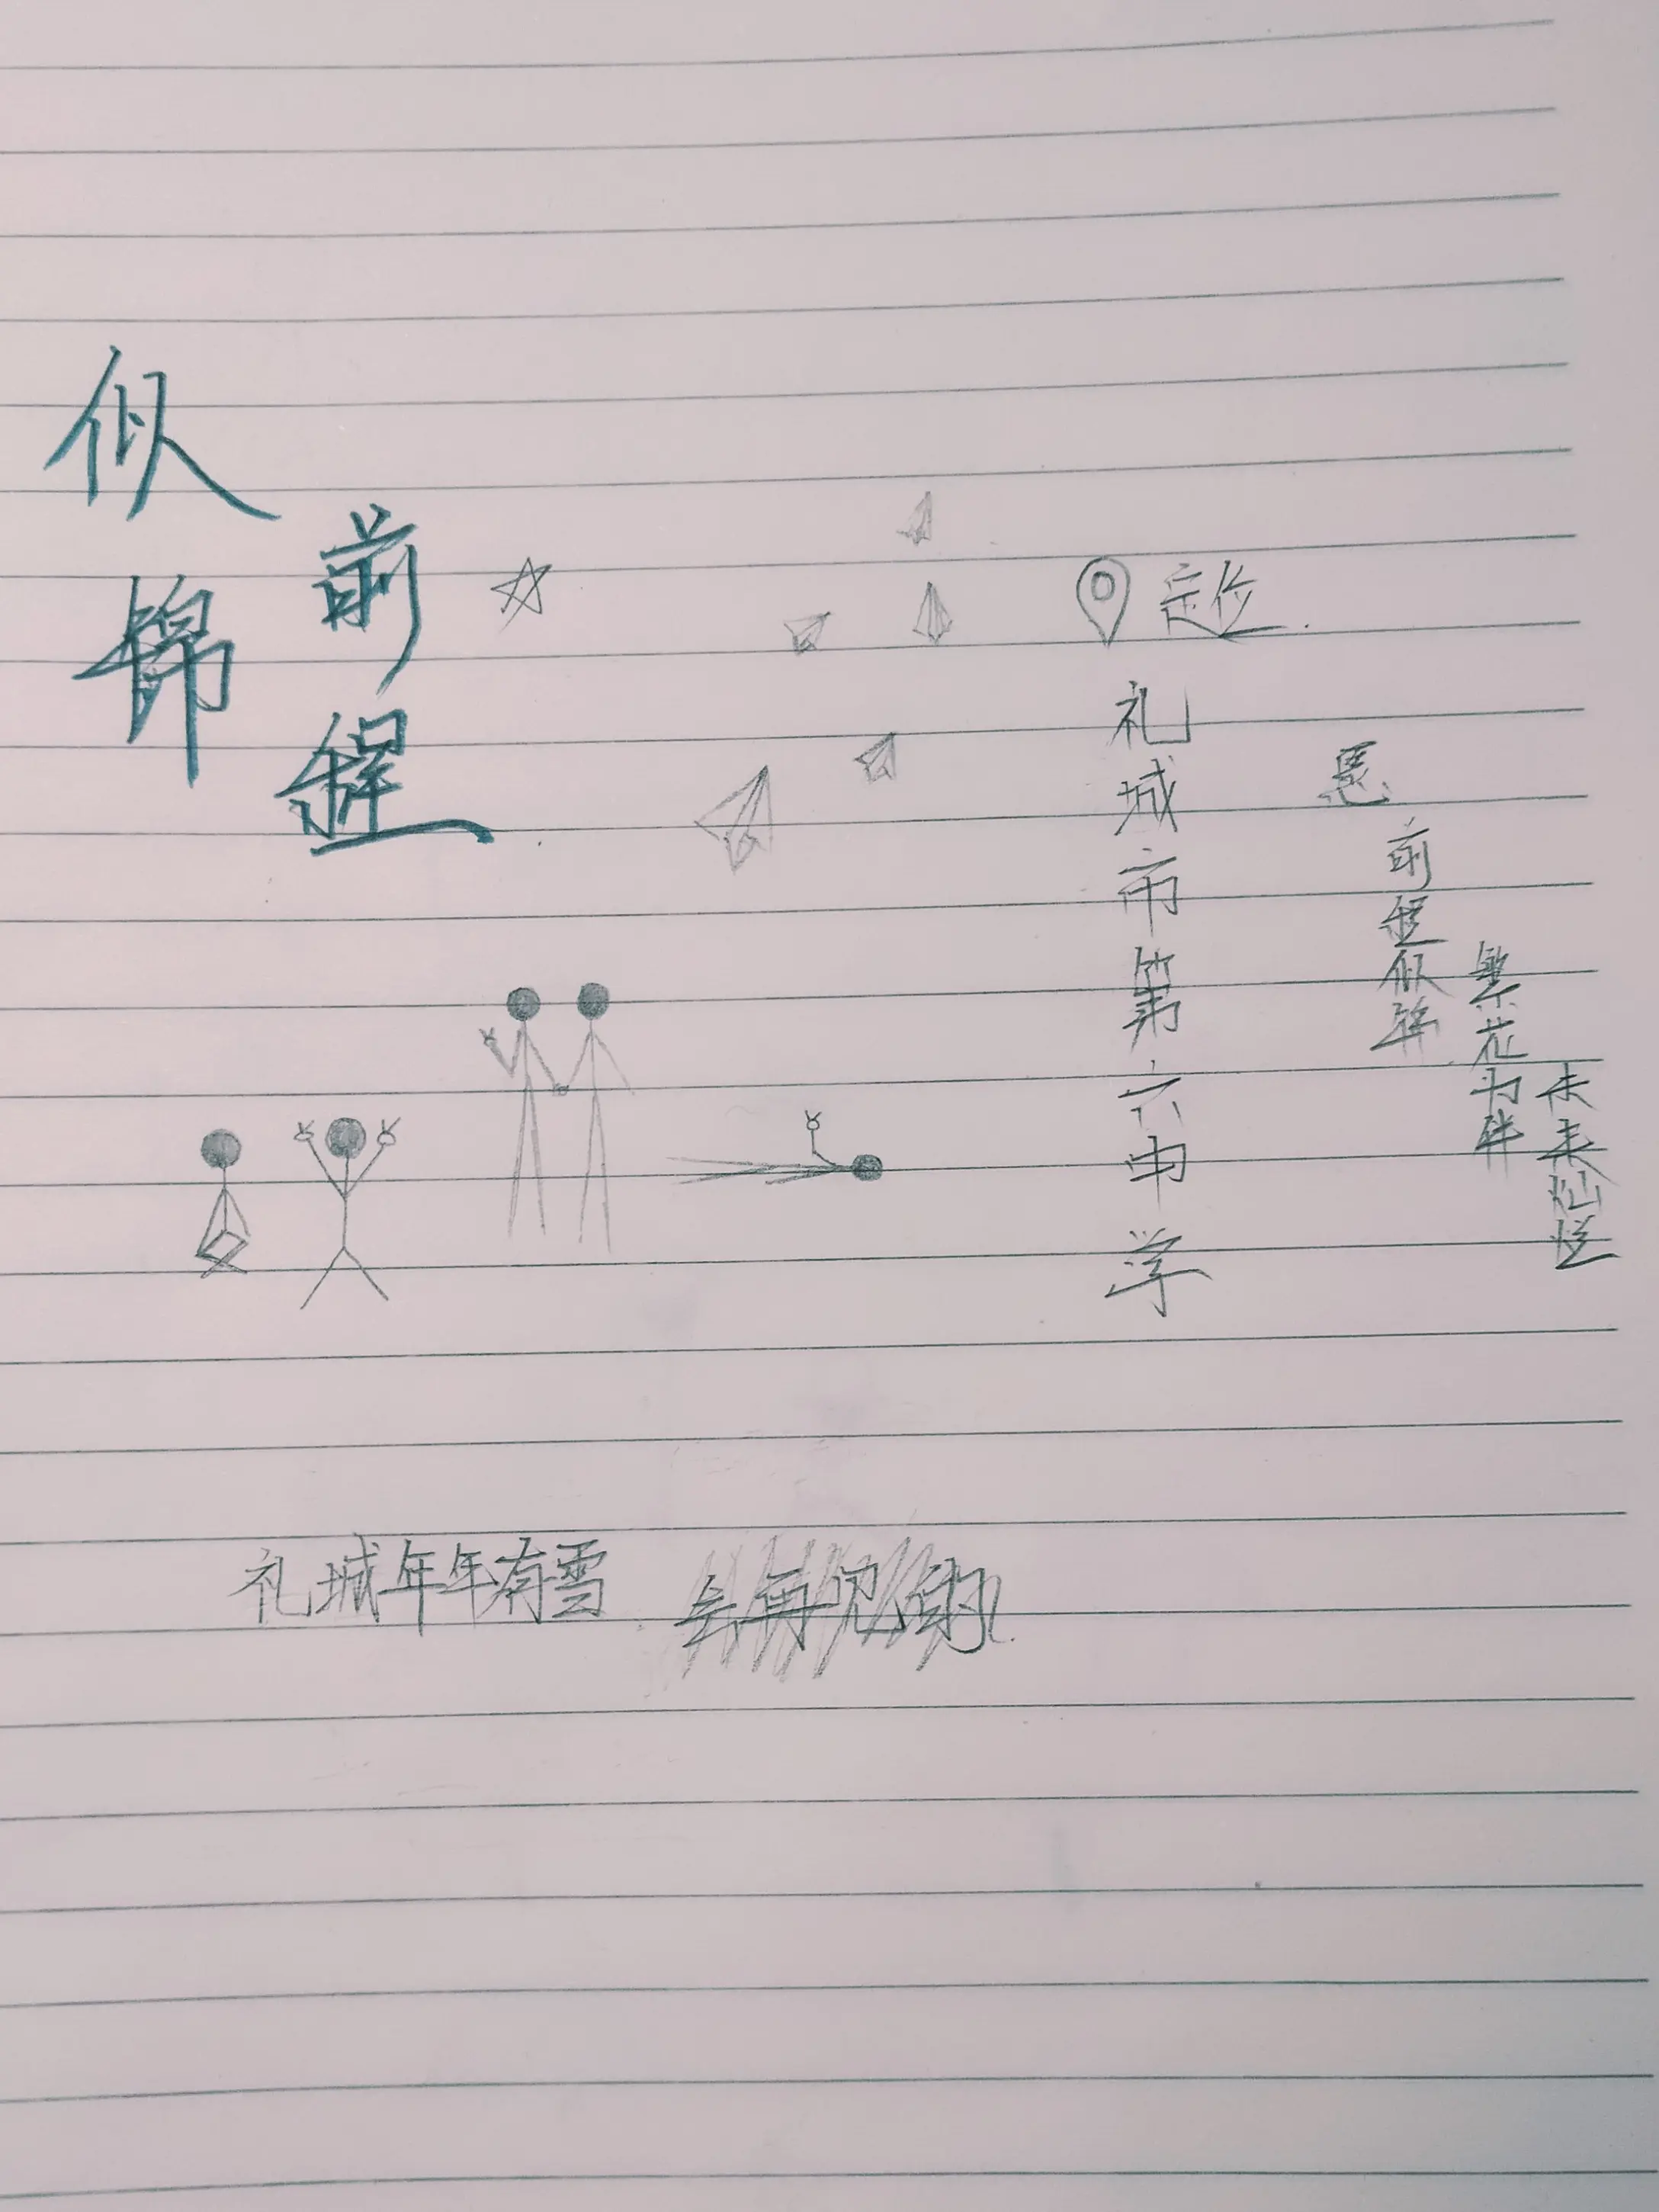 前程
似锦
定位
礼城市第六中学
愿
前程似锦
繁花为伴
未来灿烂
礼城年年有雪 会再见的